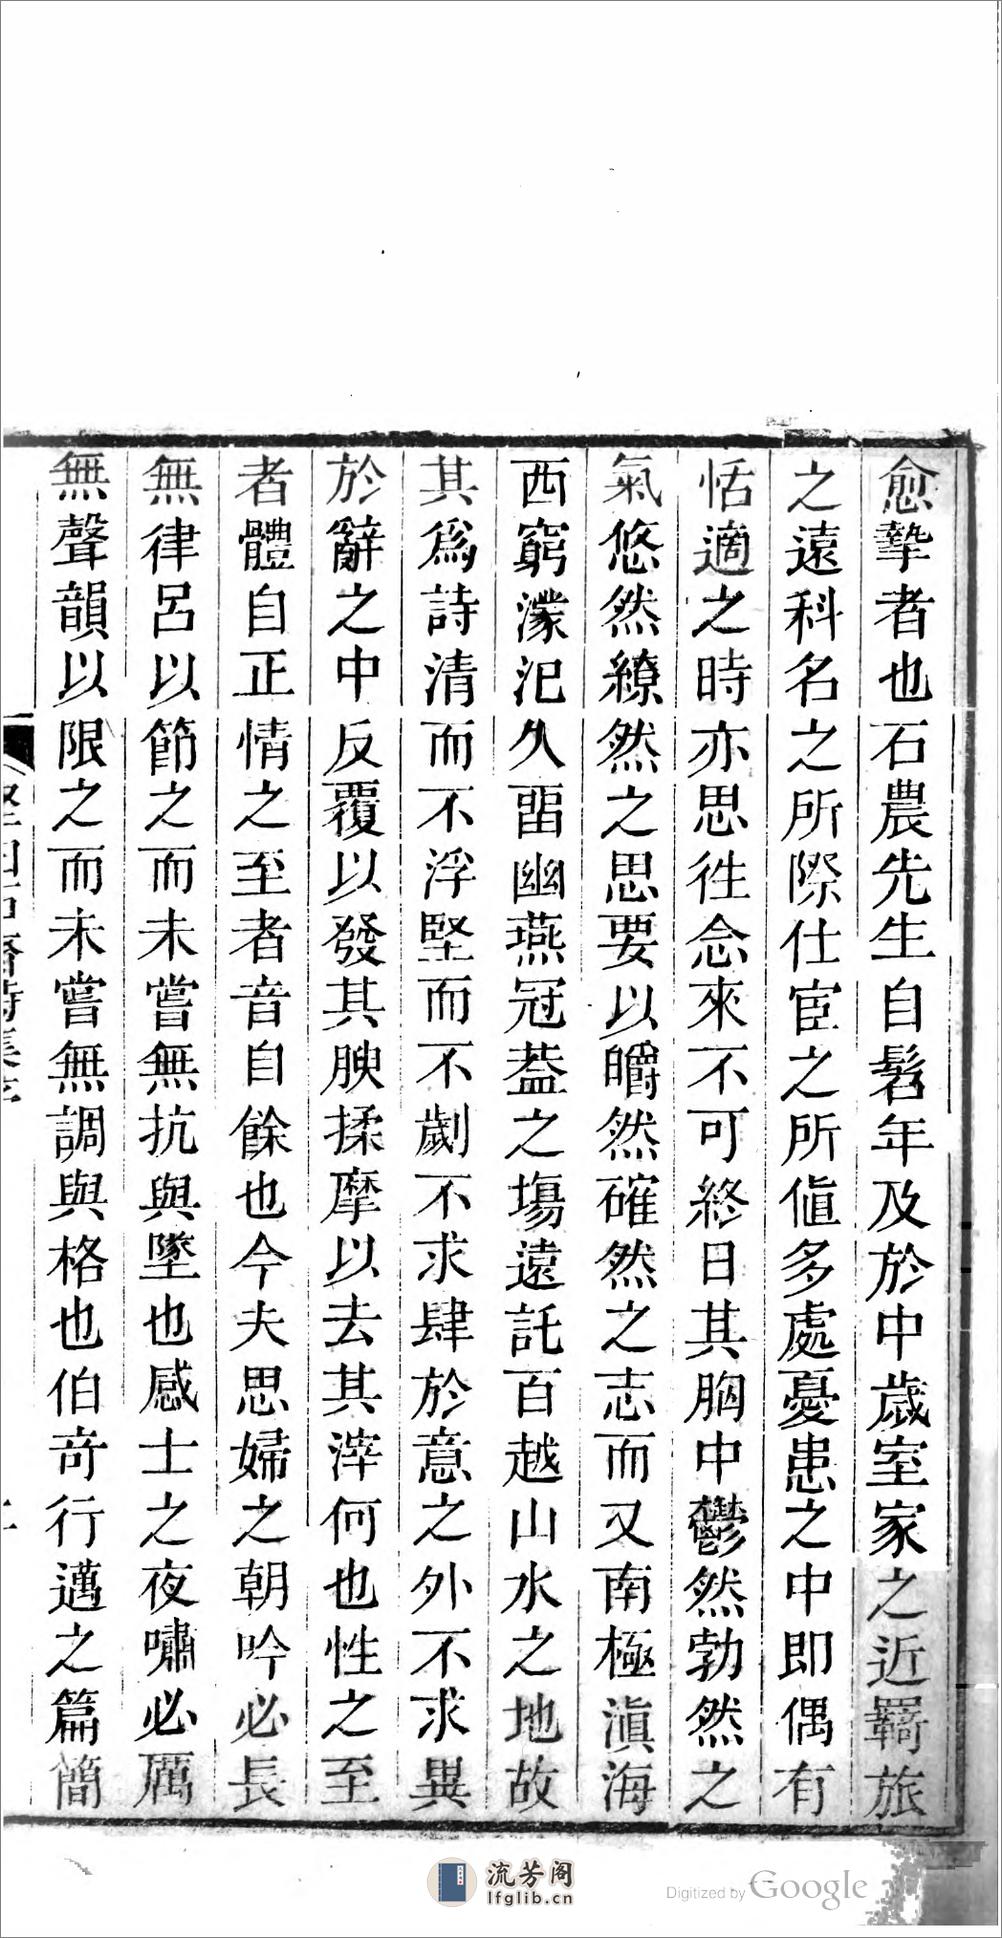 愈摯者也石農先生自髫年及於中歲室家之近羇旅
之遠科名之所際仕宦之所值多處憂患之中即偶有
恬適之時亦思徃念來不可終日其胸中鬱然勃然之
氣悠然繚然之思要以皭然確然之志而又南極滇海
西窮濛汜久畱幽燕冠葢之塲遠託百越山水之地故
其爲詩清而不浮堅而不劌不求肆於意之外不求異
於辭之中反覆以發其腴揉摩以去其滓何也性之至
者體自正情之至者音自餘也今夫思婦之朝吟必長
無律呂以節之而未嘗無抗與墜也感士之夜嘯必厲
無聲韻以限之而未嘗無調與格也伯奇行邁之篇簡
流芳阁
lfglib.cn
Digitized by Google